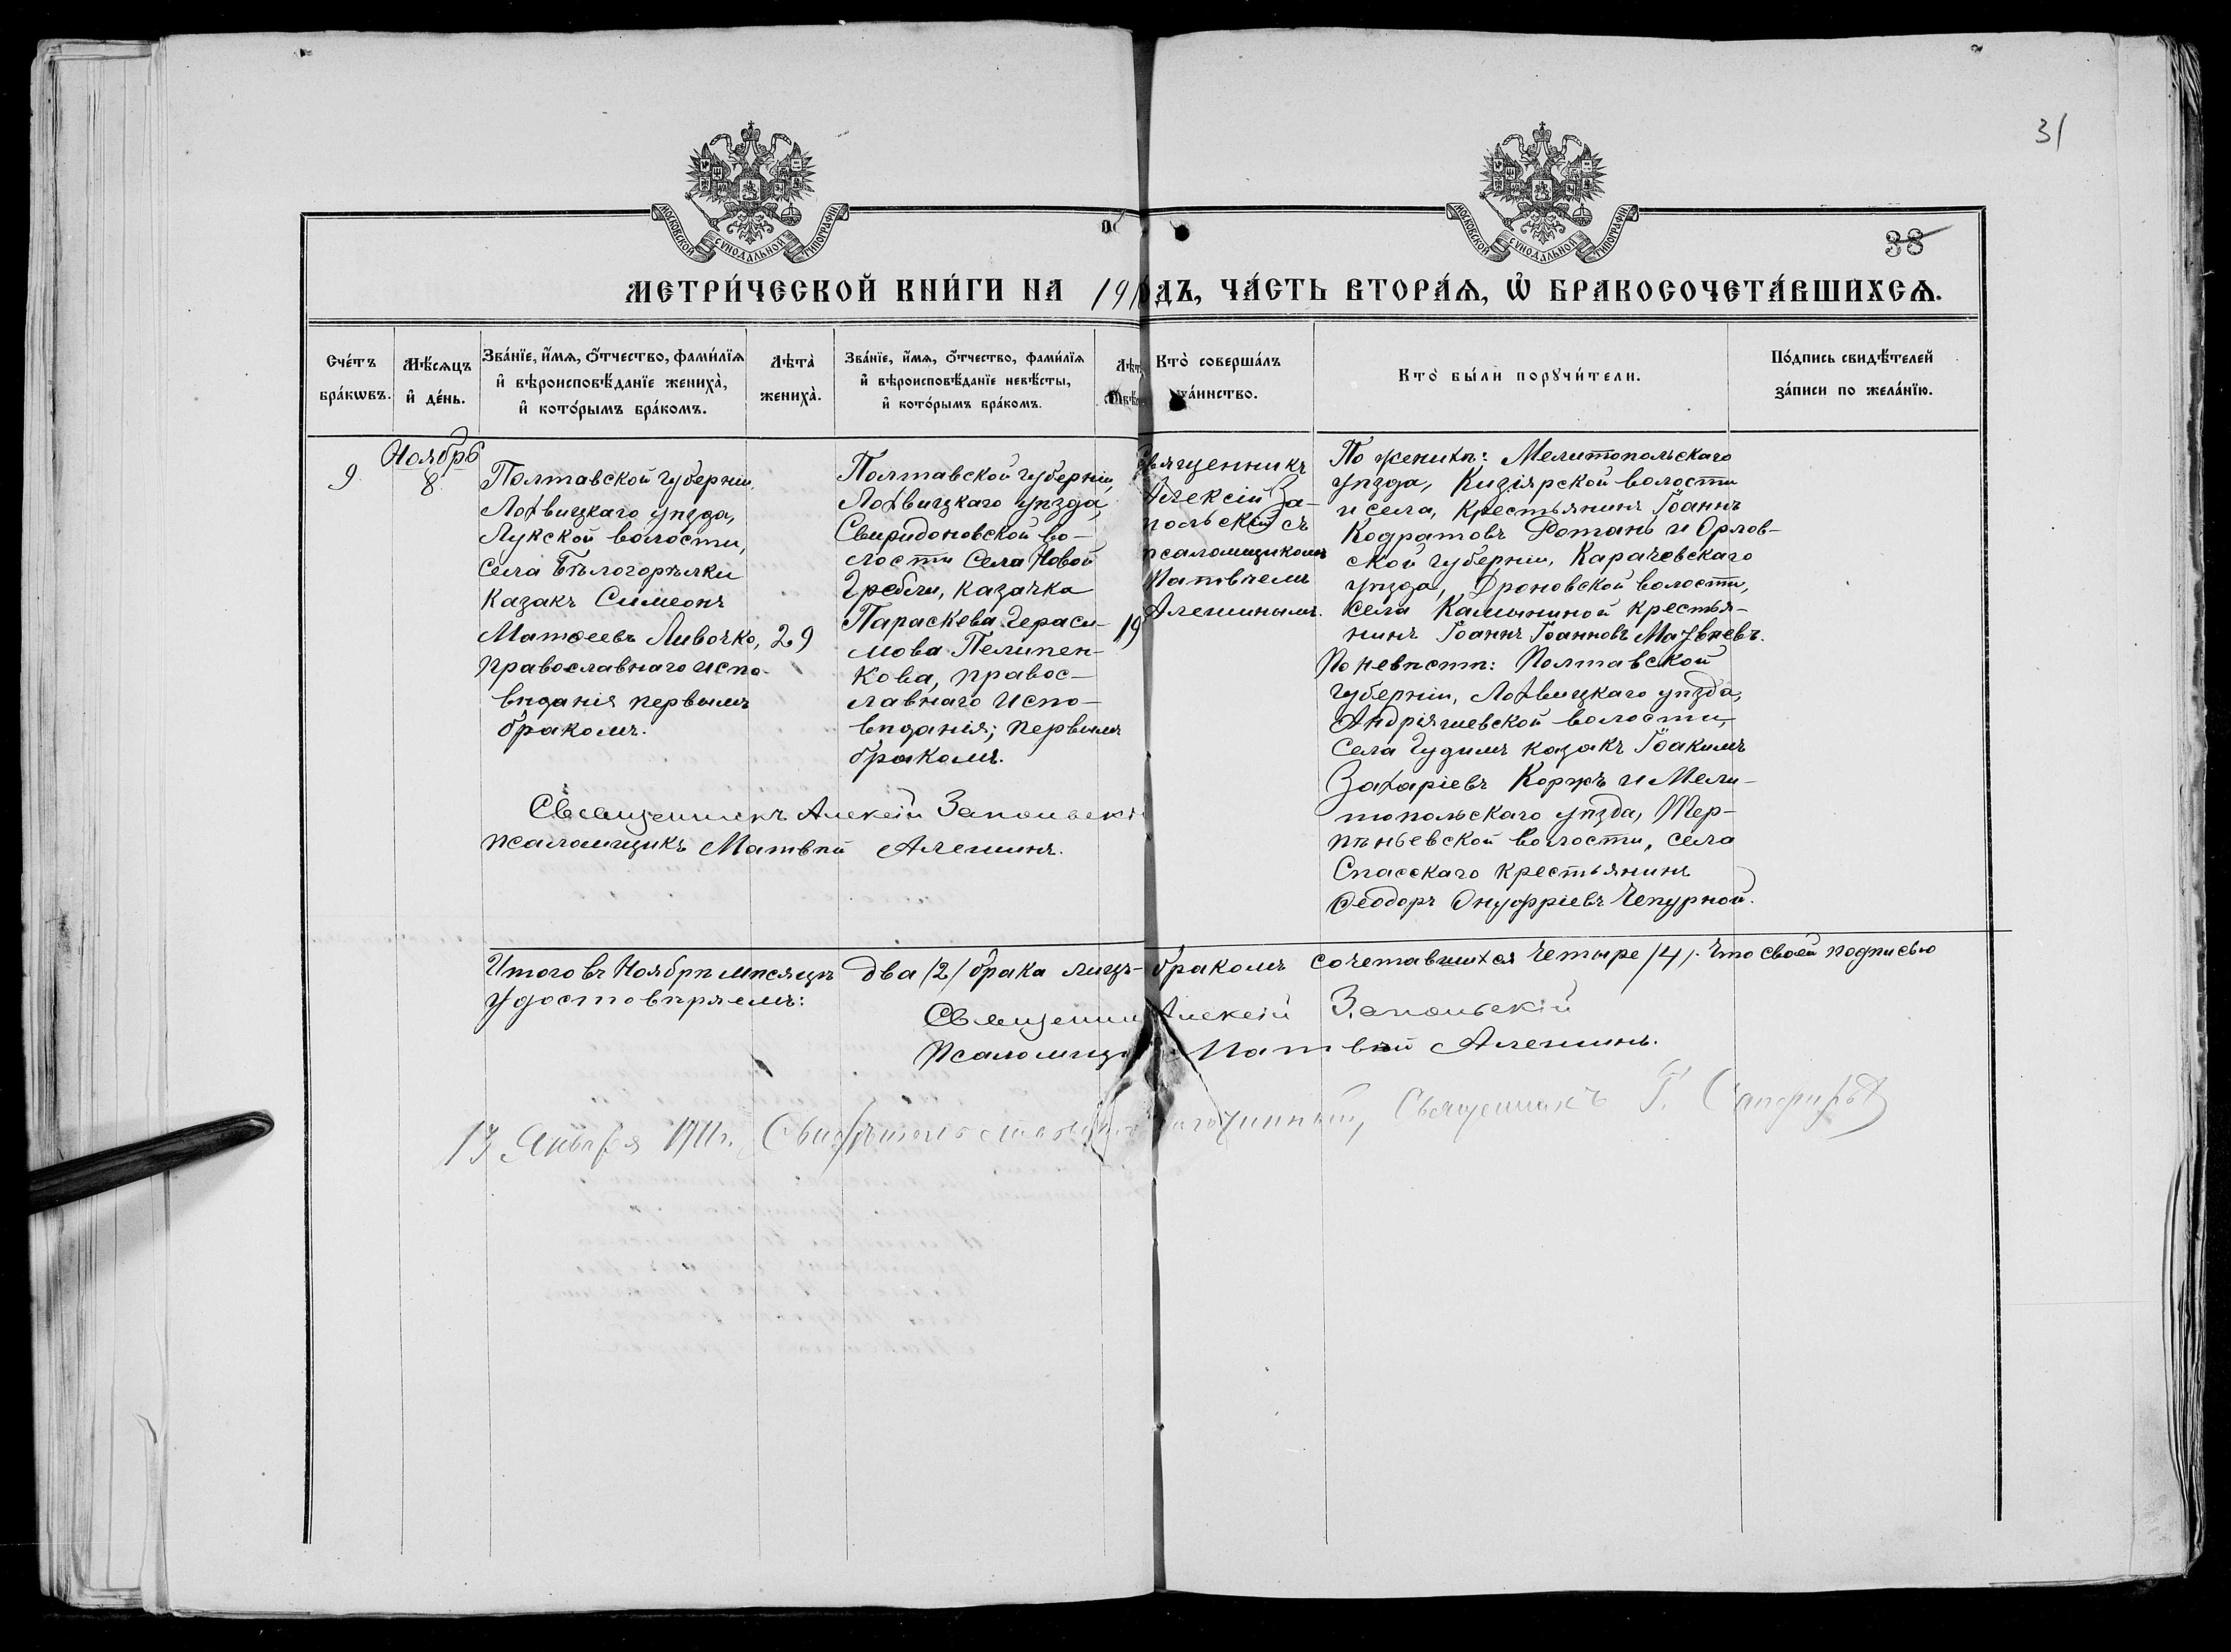 31
38
МОСКОВСКОЙ СУНОДАЛЬНОЙ ТИПОГРАФІИ
МОСКОВСКОЙ СУНОДАЛЬНОЙ ТИПОГРАФІИ
МЕТРИ́ЧЕСКОЙ КНИ́ГИ НА 191 ДЪ, ЧА́СТЬ ВТОРА́Ѧ, Ѽ БРАКОСОЧЕТА́ВШИХСѦ.
Сче́тъ бра́кѡвъ.
Мѣ́сяцъ и҆ де́нь.
Зва́нїе, и҆́мѧ, ѻ҆́тчество, фами́лїѧ
и҆ вѣроисповѣ́данїе жениха̀,
и҆ кото́рымъ бра́комъ.
Лѣта̀ жениха̀.
Зва́нїе, и҆́мѧ, ѻ҆́тчество, фами́лїѧ
и҆ вѣроисповѣ́данїе невѣ́сты,
и҆ кото́рымъ бра́комъ.
Кто̀ соверша́лъ
та́инство.
Кто̀ бы́ли порꙋчи́тели.
По́дпись свидѣ́телей
за́писи по жела́нїю.
9
Ноябрь
8
Полтавской губерніи,
Лохвицкаго уѣзда,
Лукской волости,
села Бѣлогорѣлки
казакъ Симеонъ
Матѳеевъ Ливочко,
православнаго испо-
вѣданія первымъ
бракомъ.
29
Полтавской губерніи,
Лохвицкаго уѣзда,
Свиридоновской во-
лости села Новой
Гребли, казачка
Параскева Гераси-
мова Пелипен-
кова, правос-
лавнаго испо-
вѣданія; первымъ
бракомъ.
19
Священникъ
Алексій За-
польскій съ
псаломщикомъ
Матвѣемъ
Алешинымъ.
По женихѣ: Мелитопольскаго
уѣзда, Кизіярской волости
и села, крестьянинъ Іоаннъ
Кодратовъ Ротань и Орлов-
ской губерніи, Карачевскаго
уѣзда, Дроновской волости,
села Калининой крестья-
нинъ Іоаннъ Іоанновъ Матвѣевъ.
По невѣстѣ: Полтавской
губерніи, Лохвицкаго уѣзда,
Андріяшевской волости,
села Гудимъ казакъ Іоакимъ
Захаріевъ Коржъ и Мели-
топольскаго уѣзда, Тер-
пѣньевской волости, села
Спасскаго крестьянинъ
Ѳеодоръ Онуфріевъ Чепурной.
Священникъ Алексій Запольскій
псаломщикъ Матвѣй Алешинъ.
Итого въ Ноябрѣ мѣсяцѣ два /2/ брака лицъ- бракомъ сочетавшихся четыре /4/. Что своей подписью
удостовѣряемъ:
Священникъ Алексій Запольскій
Псаломщикъ Матвѣй Алешинъ.
13 Января 1911 г. Свидѣтельствовалъ Благочинный, Священникъ Г. Сапфировъ